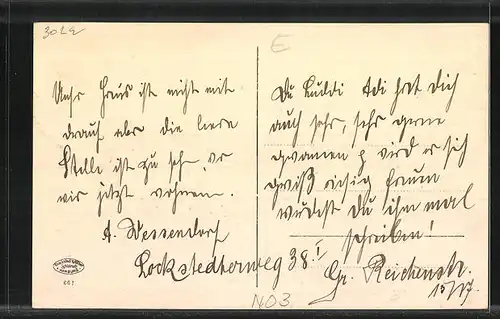 30 L E
E
Unser Haus ist nicht mit
drauf aber die leere
Stelle ist zu sehn, wo
wir jetzt wohnen.
A. Wessendorf
Lockstedterweg 38 I
Du Luddi Adi hat dich
auch sehr, sehr gerne
gewonnen & wird er sich
gewiß riesig freuen
würdest Du ihm mal
schreiben!
Gr. Reichenstr.
15/17
NO3
667